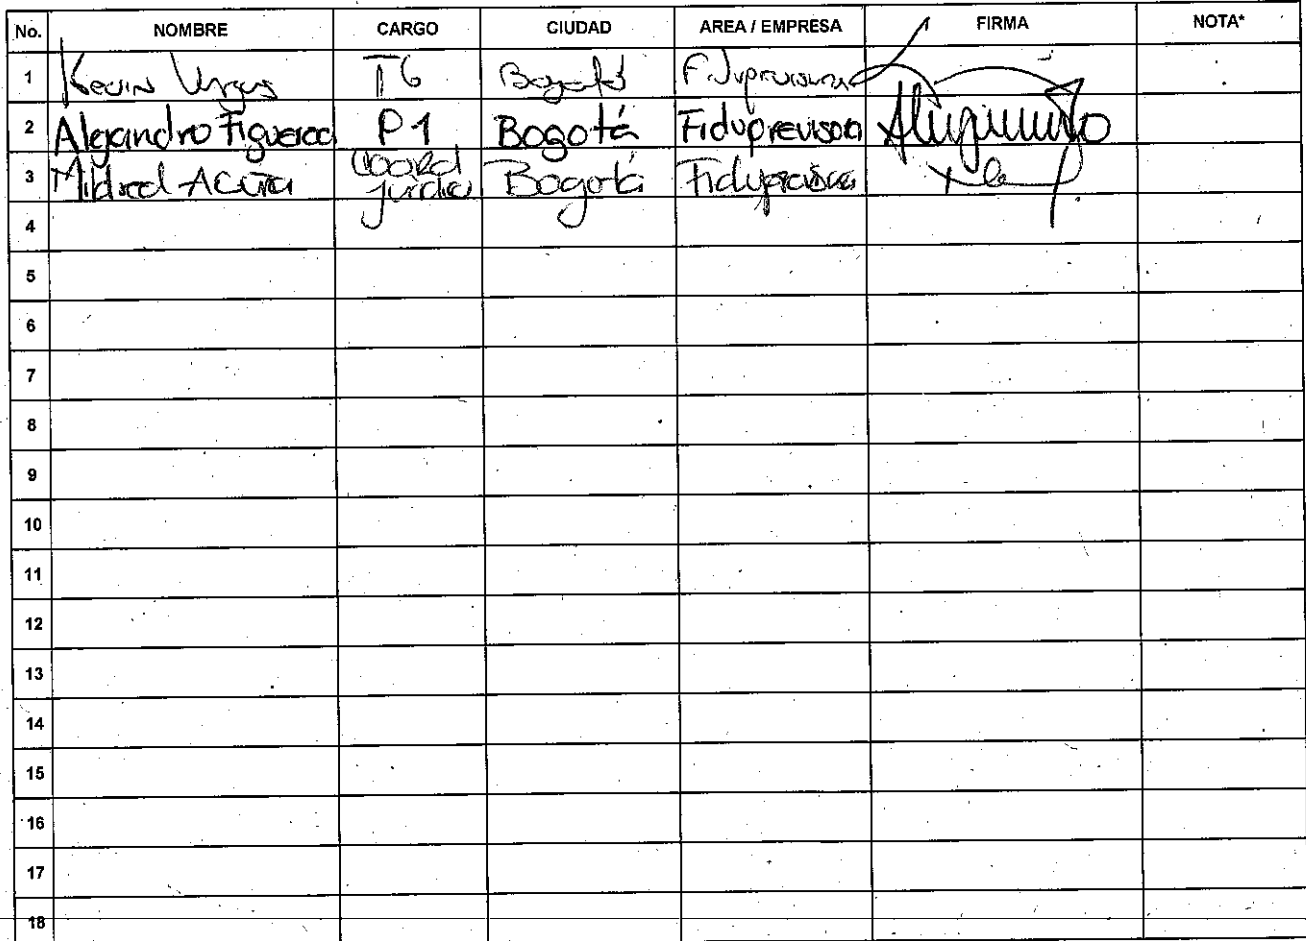 No. NOMBRE CARGO CIUDAD AREA / EMPRESA FIRMA NOTA*
1 Kevin Vargas T6 Bogotá Fiduprevisora
2 Alejandro Figueroa P1 Bogotá Fiduprevisora
3 Mildred Acuña Coord Bogotá Fiduprevisora
jurídica
4
5
6
7
8
9
10
11
12
13
14
15
16
17
18